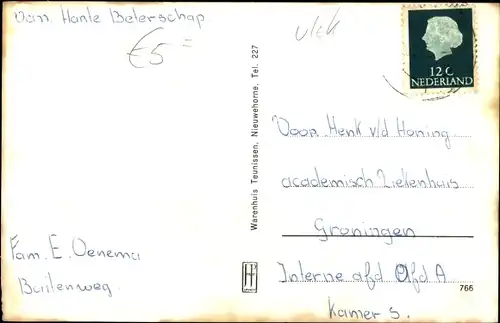 Van Hante Beterschap
€5=
12 C
NEDERLAND
Voor Henk v/d Honing
academisch Ziekenhuis
Groningen
Interne afd Afd A
Kamer 5.
Fam. E. Venema
Buitenweg.
Warenhuis Teunissen, Nieuwehorne, Tel. 227
766